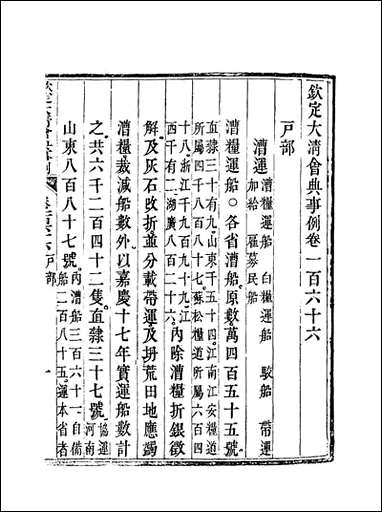 欽定大清會典事例卷一百六十六
戶部
漕運 漕糧運船 白糧運船 駁船 帶運
加給 雇募民船
漕糧運船○各省漕船原數萬四百五十五號
直隸三十有九山東千五十四江南江安糧道
所屬四千八百八十七蘇松糧道所屬六百四
十八浙江千九百九十九江
西千有二湖廣八百二十六
內除漕糧折銀徵
解及灰石改折並分載帶運及坍荒田地應蠲
漕糧裁減船數外以嘉慶十七年實運船數計
之共六千二百四十二隻直隸三十七號
協運
河南
山東八百八十七號
內漕船三百六十一自備
船二百八十五運本省者
戶部
一